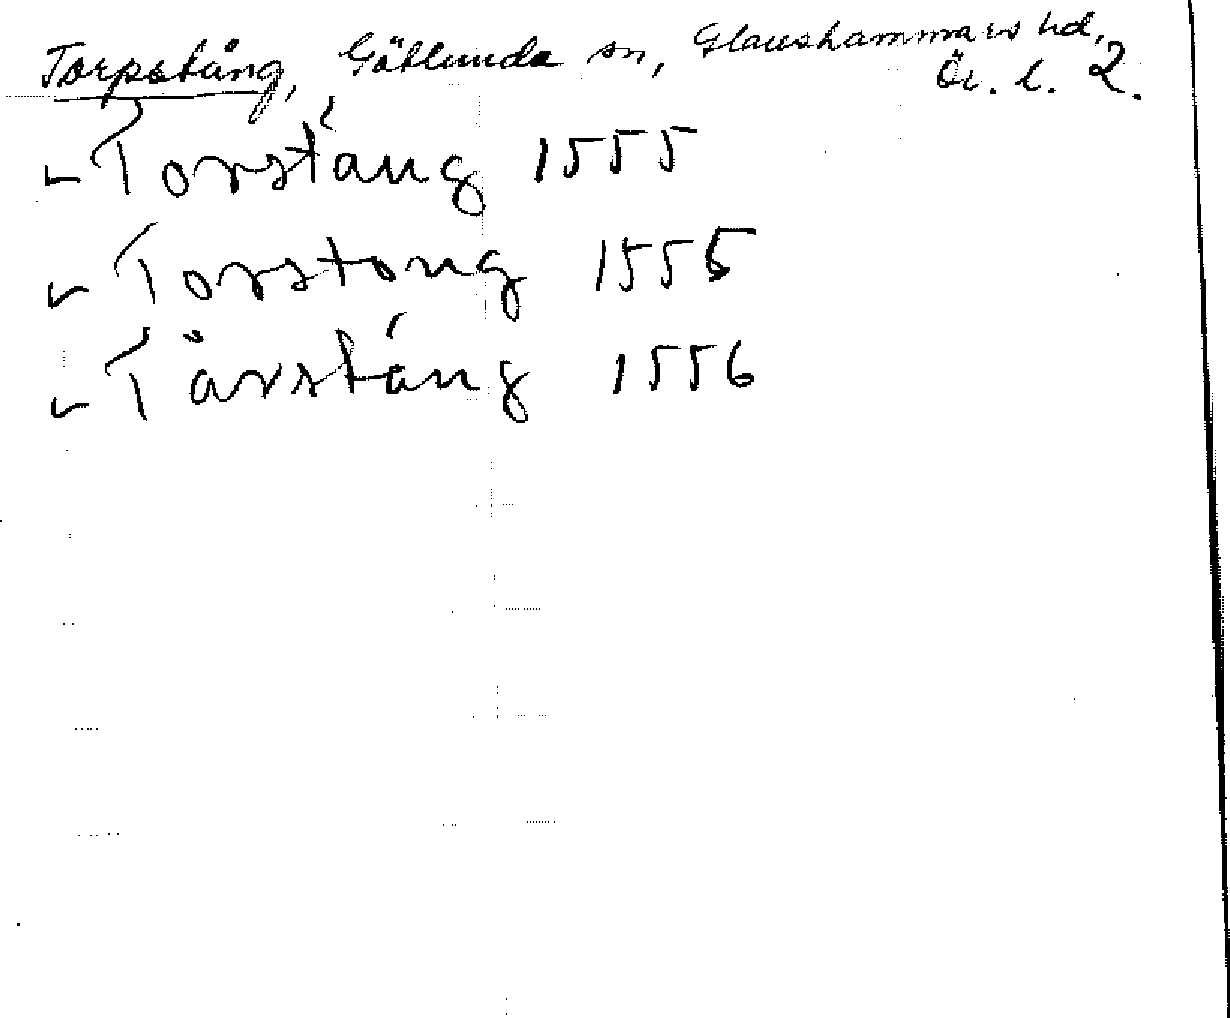 Torpstång, Götlunda sn, Glanshammars hd,
Ör. l. 2.
Torstáng 1555
Torstong 1556
Tårstáng 1556